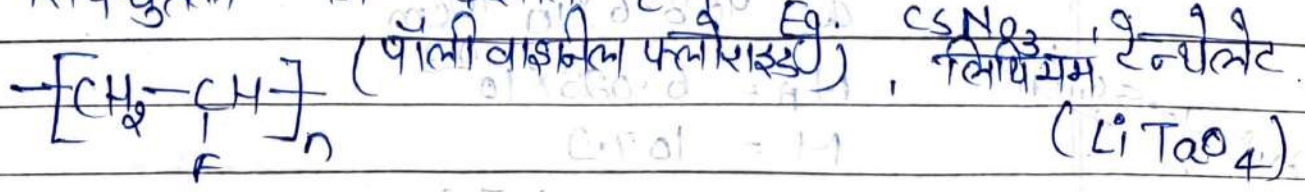 Eg. CsNO3,
-[CH2-CH-]n (पॉली वाइनिल फ्लोराइड), लिथियम टेन्थेलेट
F
(LiTaO4)